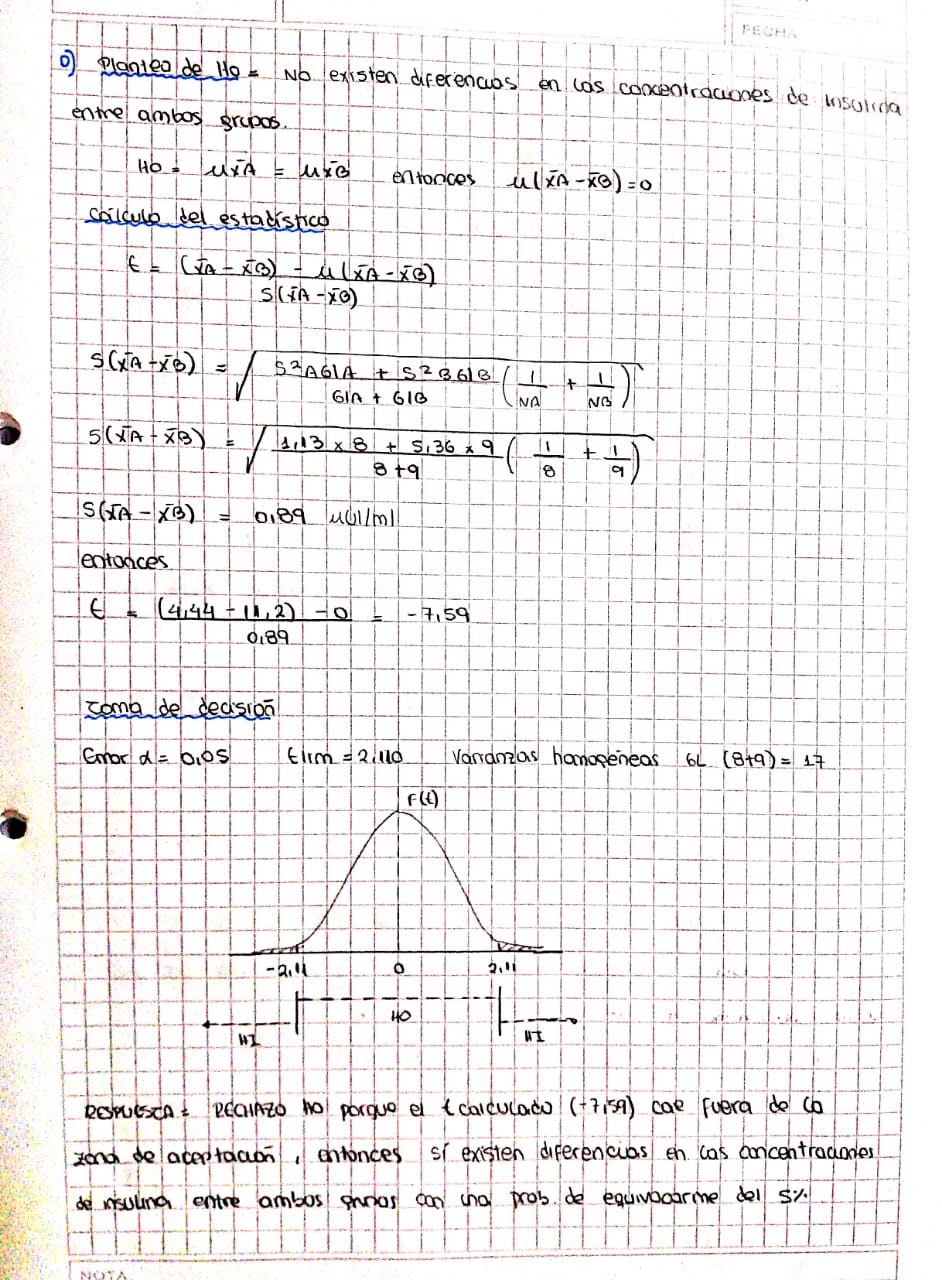 FECHA
0) Planteo de H0 = No existen diferencias en las concentraciones de insulina
entre ambos grupos.
H0 = μx̄A = μx̄B entonces μ(x̄A - x̄B) = 0
Cálculo del estadístico
t = (x̄A - x̄B) - μ(x̄A - x̄B)
S(x̄A - x̄B)
S(x̄A - x̄B) = √ S²A GlA + S²B GlB ( 1 + 1 )
GlA + GlB NA NB
S(x̄A - x̄B) = √ 1,13 x 8 + 5,36 x 9 ( 1 + 1 )
8 + 9 8 9
S(x̄A - x̄B) = 0,89 μUI/ml
entonces
t = (4,44 - 11,2) - 0 = -7,59
0,89
Toma de decisión
Error α = 0,05 t lim = 2,110 Varianzas homogéneas GL (8+9) = 17
F(t)
-2,11 0 2,11
H0
HI HI
RESPUESTA: RECHAZO H0 porque el t calculado (-7,59) cae fuera de la
zona de aceptación, entonces sí existen diferencias en las concentraciones
de insulina entre ambos grupos con una prob. de equivocarme del 5%.
NOTA